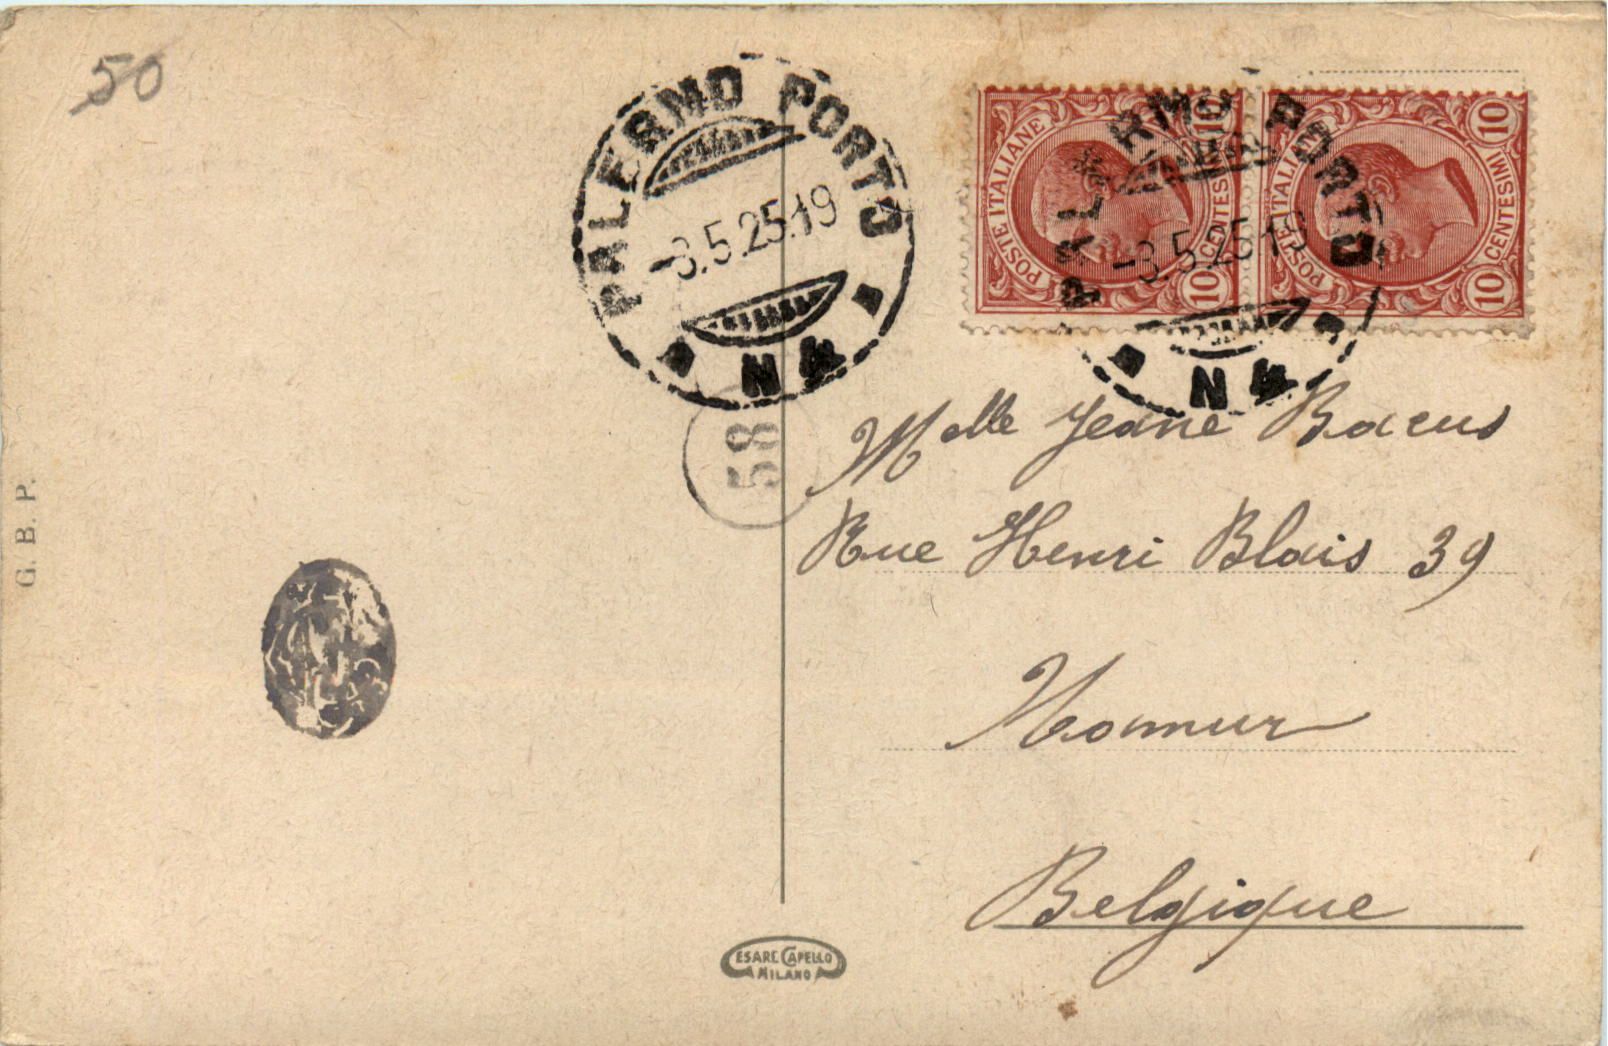 50
PALERMO PORTO
-3.5.25.19
N 4
POSTE ITALIANE
10 CENTESIMI 10
POSTE ITALIANE
10 CENTESIMI 10
PALERMO PORTO
-3.5.25 19
N 4
58
Melle Jeane Bacus
Rue Henri Blais 39
Namur
Belgique
G. B. P.
CESARE CAPELLO
MILANO